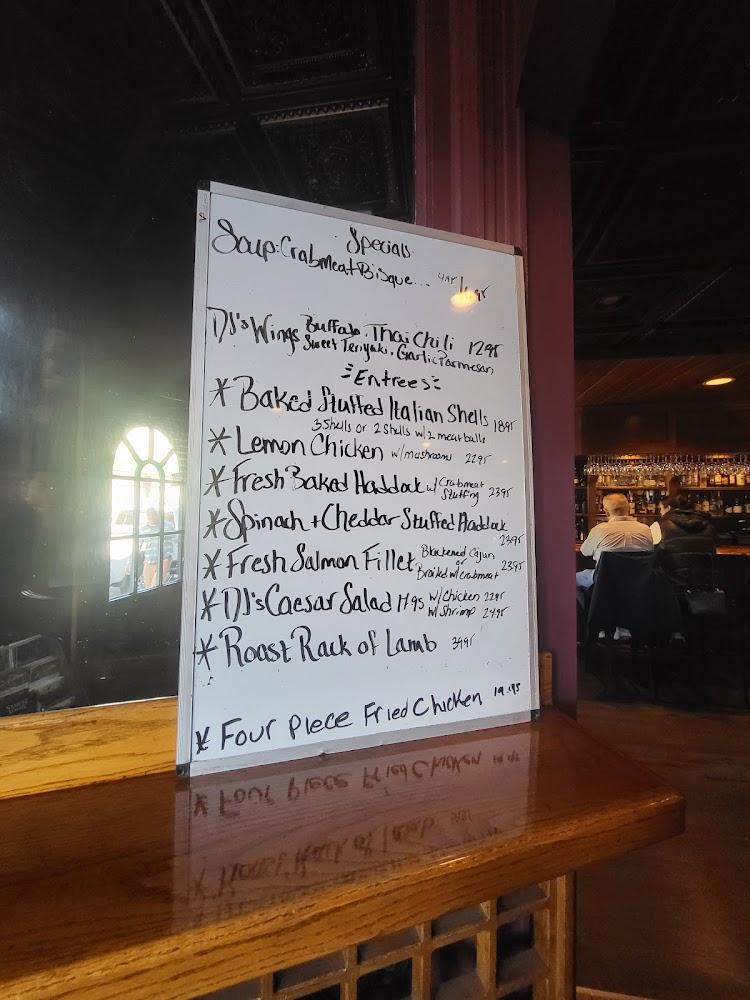 Specials
Soup: Crabmeat Bisque... 4.95
DJ's Wings Buffalo, Thai Chili 12.95
Sweet Teriyaki, Garlic Parmesan
Entrees
* Baked Stuffed Italian Shells 18.95
3 Shells or 2 Shells w/ 2 meatballs
* Lemon Chicken w/ mushrooms 22.95
* Fresh Baked Haddock w/ Crabmeat
Stuffing 23.95
* Spinach + Cheddar Stuffed Haddock
23.95
* Fresh Salmon Fillet Blackened Cajun
or 23.95
Broiled w/ crabmeat
* DJ's Caesar Salad 17.95 w/ Chicken 22.95
w/ Shrimp 24.95
* Roast Rack of Lamb 39.95
* Four Piece Fried Chicken 19.95